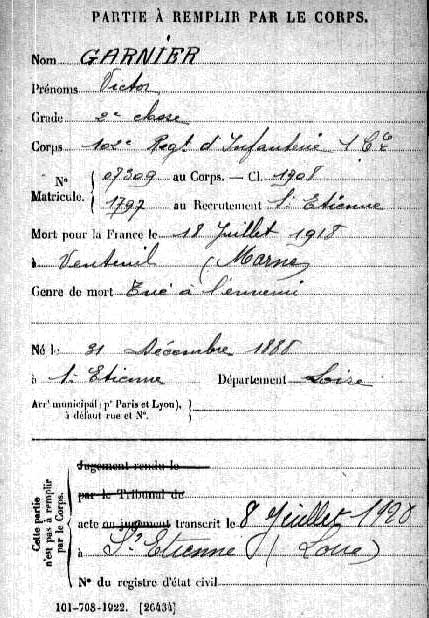 PARTIE À REMPLIR PAR LE CORPS.
Nom GARNIER
Prénoms Victor
Grade 2e classe
Corps 102e Regt d'Infanterie 1 Cie
No Matricule. 07309 au Corps. — Cl. 1908
1797 au Recrutement St Etienne
Mort pour la France le 18 Juillet 1918
à Venteuil (Marne)
Genre de mort Tué à l'ennemi
Né le 31 Décembre 1888
à St Etienne Département Loire
Arrt municipal (pr Paris et Lyon), à défaut rue et No.
Cette partie n'est pas à remplir par le Corps.
Jugement rendu le
par le Tribunal de
acte ou jugement transcrit le 8 Juillet 1920
à St Etienne (Loire)
No du registre d'état civil
101-708-1922. [26434]